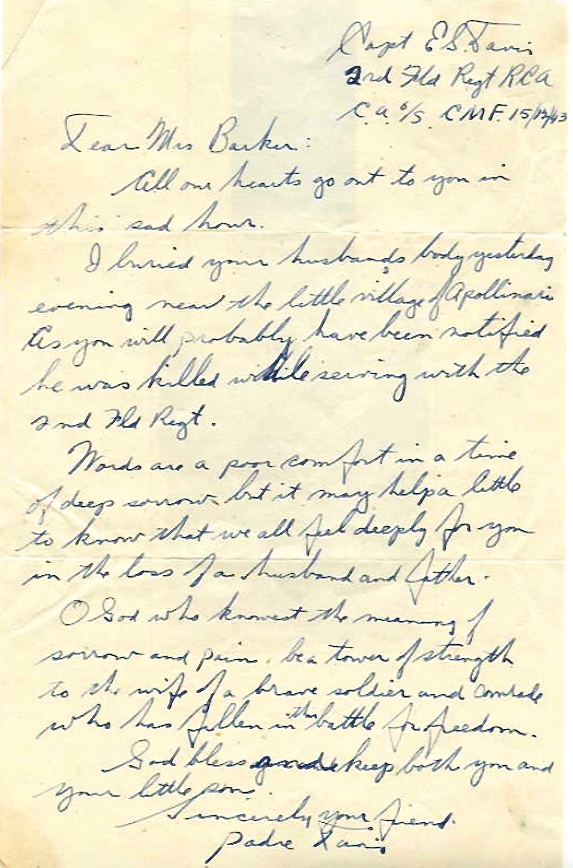 Capt E.S. Davis
2nd Fld Regt RCA
C A o/s CMF. 15/12/43
Dear Mrs Barker:
All our hearts go out to you in
this sad hour.
I buried your husbands body yesterday
evening near the little village of Apollinari
As you will probably have been notified
he was killed while serving with the
2nd Fld Regt.
Words are a poor comfort in a time
of deep sorrow but it may help a little
to know that we all feel deeply for you
in the loss of a husband and father.
O God who knowest the meaning of
sorrow and pain, be a tower of strength
to the wife of a brave soldier and comrade
who has fallen in this battle for freedom.
God bless and keep both you and
your little son.
Sincerely your fiend.
Padre Davis